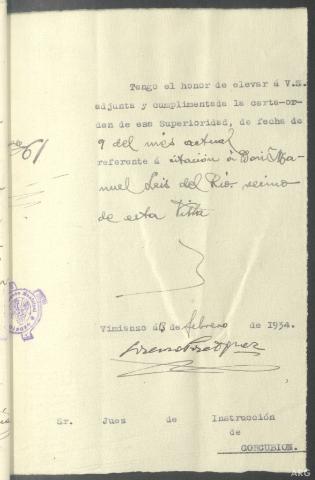 Tengo el honor de elevar á V.S.
adjunta y cumplimentada la carta-or-
den de esa Superioridad, de fecha de
9 del mes actual
referente á citación á Don Ma-
nuel Leis del Río, vecino
de esta Villa
61
Vimianzo de febrero de 1934.
Sr. Juez de Instrucción
de
CORCUBION.
AKG